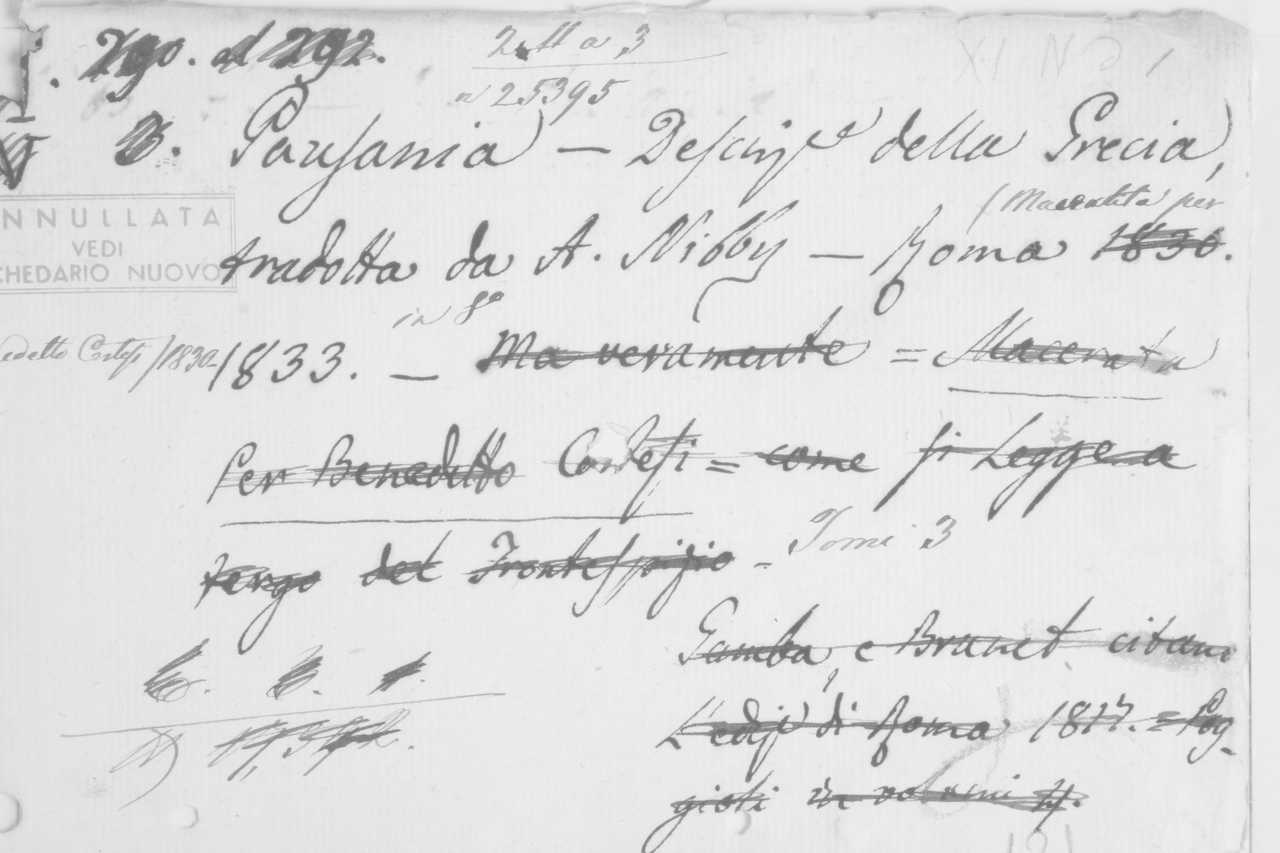 290. al 292. 2.H a 3
n 25395
B. Pausania — Descriz.e della Grecia,
(Macerata per
tradotta da A. Nibby — Roma 1830.
ANNULLATA
VEDI
SCHEDARIO NUOVO
in 8o
edetto Cortesi /1830-1833. — Ma veramente = Macerata
Per Benedetto Cortesi = come si Legge a
tergo del Frontespizio - Tomi 3
Gamba, e Brunet citano
L'ediz.e di Roma 1817. = Pog-
gioli in volumi 4.